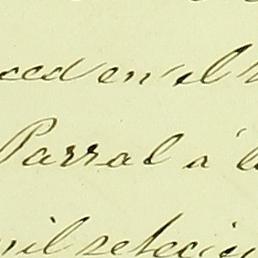 ced en el
Parral á
mil seteci